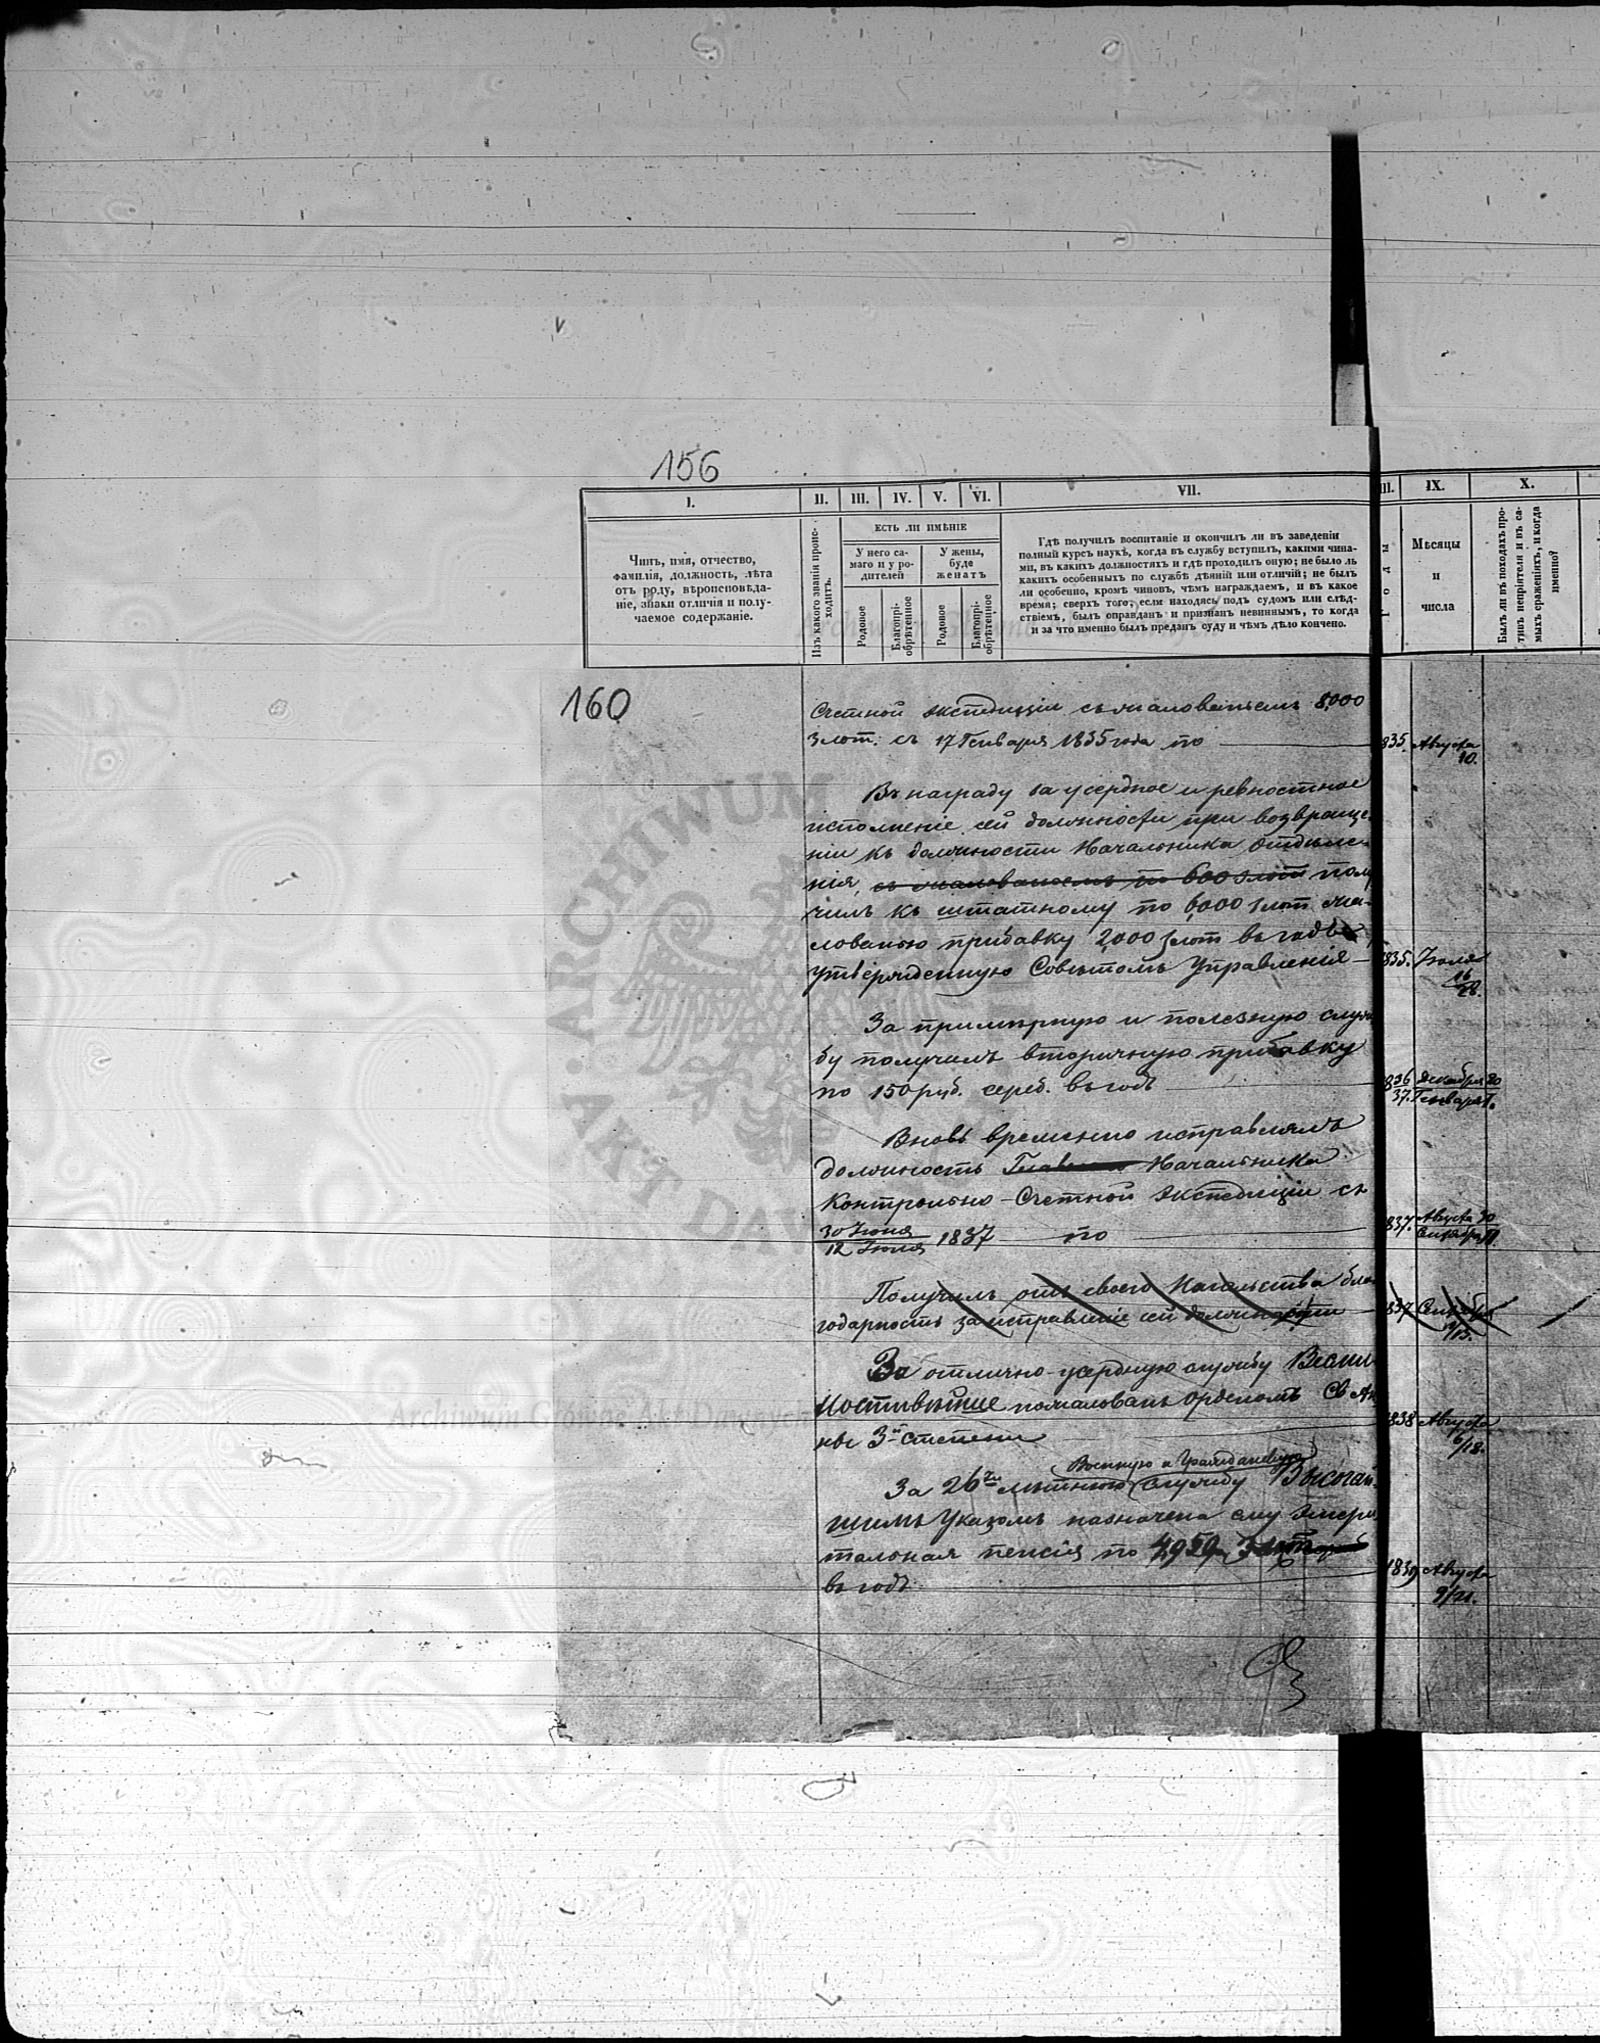 156
I. II. III. IV. V. VI. VII. III. IX. X.
Чинъ, имя, отчество,
фамилія, должность, лѣта
отъ роду, вѣроисповѣда-
ніе, знаки отличія и полу-
чаемое содержаніе.
Изъ какого званія проис-
ходитъ.
ЕСТЬ ЛИ ИМѢНІЕ
У него са-
маго и у ро-
дителей
У жены,
буде
женатъ
Родовое
Благопрі-
обрѣтенное
Родовое
Благопрі-
обрѣтенное
Гдѣ получилъ воспитаніе и окончилъ ли въ заведеніи
полный курсъ наукъ, когда въ службу вступилъ, какими чина-
ми, въ какихъ должностяхъ и гдѣ проходилъ оную; не было ль
какихъ особенныхъ по службѣ дѣяній или отличій; не былъ
ли особенно, кромѣ чиновъ, чѣмъ награждаемъ, и въ какое
время; сверхъ того, если находясь подъ судомъ или слѣд-
ствіемъ, былъ оправданъ и признанъ невиннымъ, то когда
и за что именно былъ преданъ суду и чѣмъ дѣло кончено.
Годы
Мѣсяцы
и
числа
Былъ ли въ походахъ про-
тивъ непріятеля и въ са-
мыхъ сраженіяхъ, и когда
именно?
160
Счетной экспедиціи съ жалованьемъ 8,000
злот: съ 17 Генваря 1835 года по 835. Августа
10.
Въ награду за усердное и ревностное
исполненіе сей должности при возвраще-
ніи къ должности Начальника Отдѣле-
нія, съ жалованьемъ по 600 злот полу
чилъ къ штатному по 6,000 злот жа-
лованью прибавку 2,000 злот въ годъ
утвержденную Совѣтомъ Управленія 835. Іюля
16
28.
За примѣрную и полезную служ
бу получилъ вторичную прибавку
по 150 руб. сереб. въ годъ 836 Декабря 20
37. Генваря 1.
Вновь временно исправлялъ
должность Главнаго Начальника
Контрольно-Счетной Экспедиціи съ
30 Іюня
12 Іюля 1837 по 837. Августа 30
Сентября 11
Получилъ отъ своего Начальства бла
годарность за исправленіе сей должности 837 Сентября
За отлично-усердную службу Всеми
лостивѣйше пожалованъ Орденомъ Св Ан
ны 3й степени 838 Августа
6/18.
Военную и Гражданскую
За 26ти лѣтнюю службу Высочай-
шимъ Указомъ назначена ему Эмери
тальная пенсія по 4950 Злот
въ годъ 1839 Августа
9/21.
ARCHIWUM
AKT DAWNYCH
Archiwum Główne Akt Dawnych